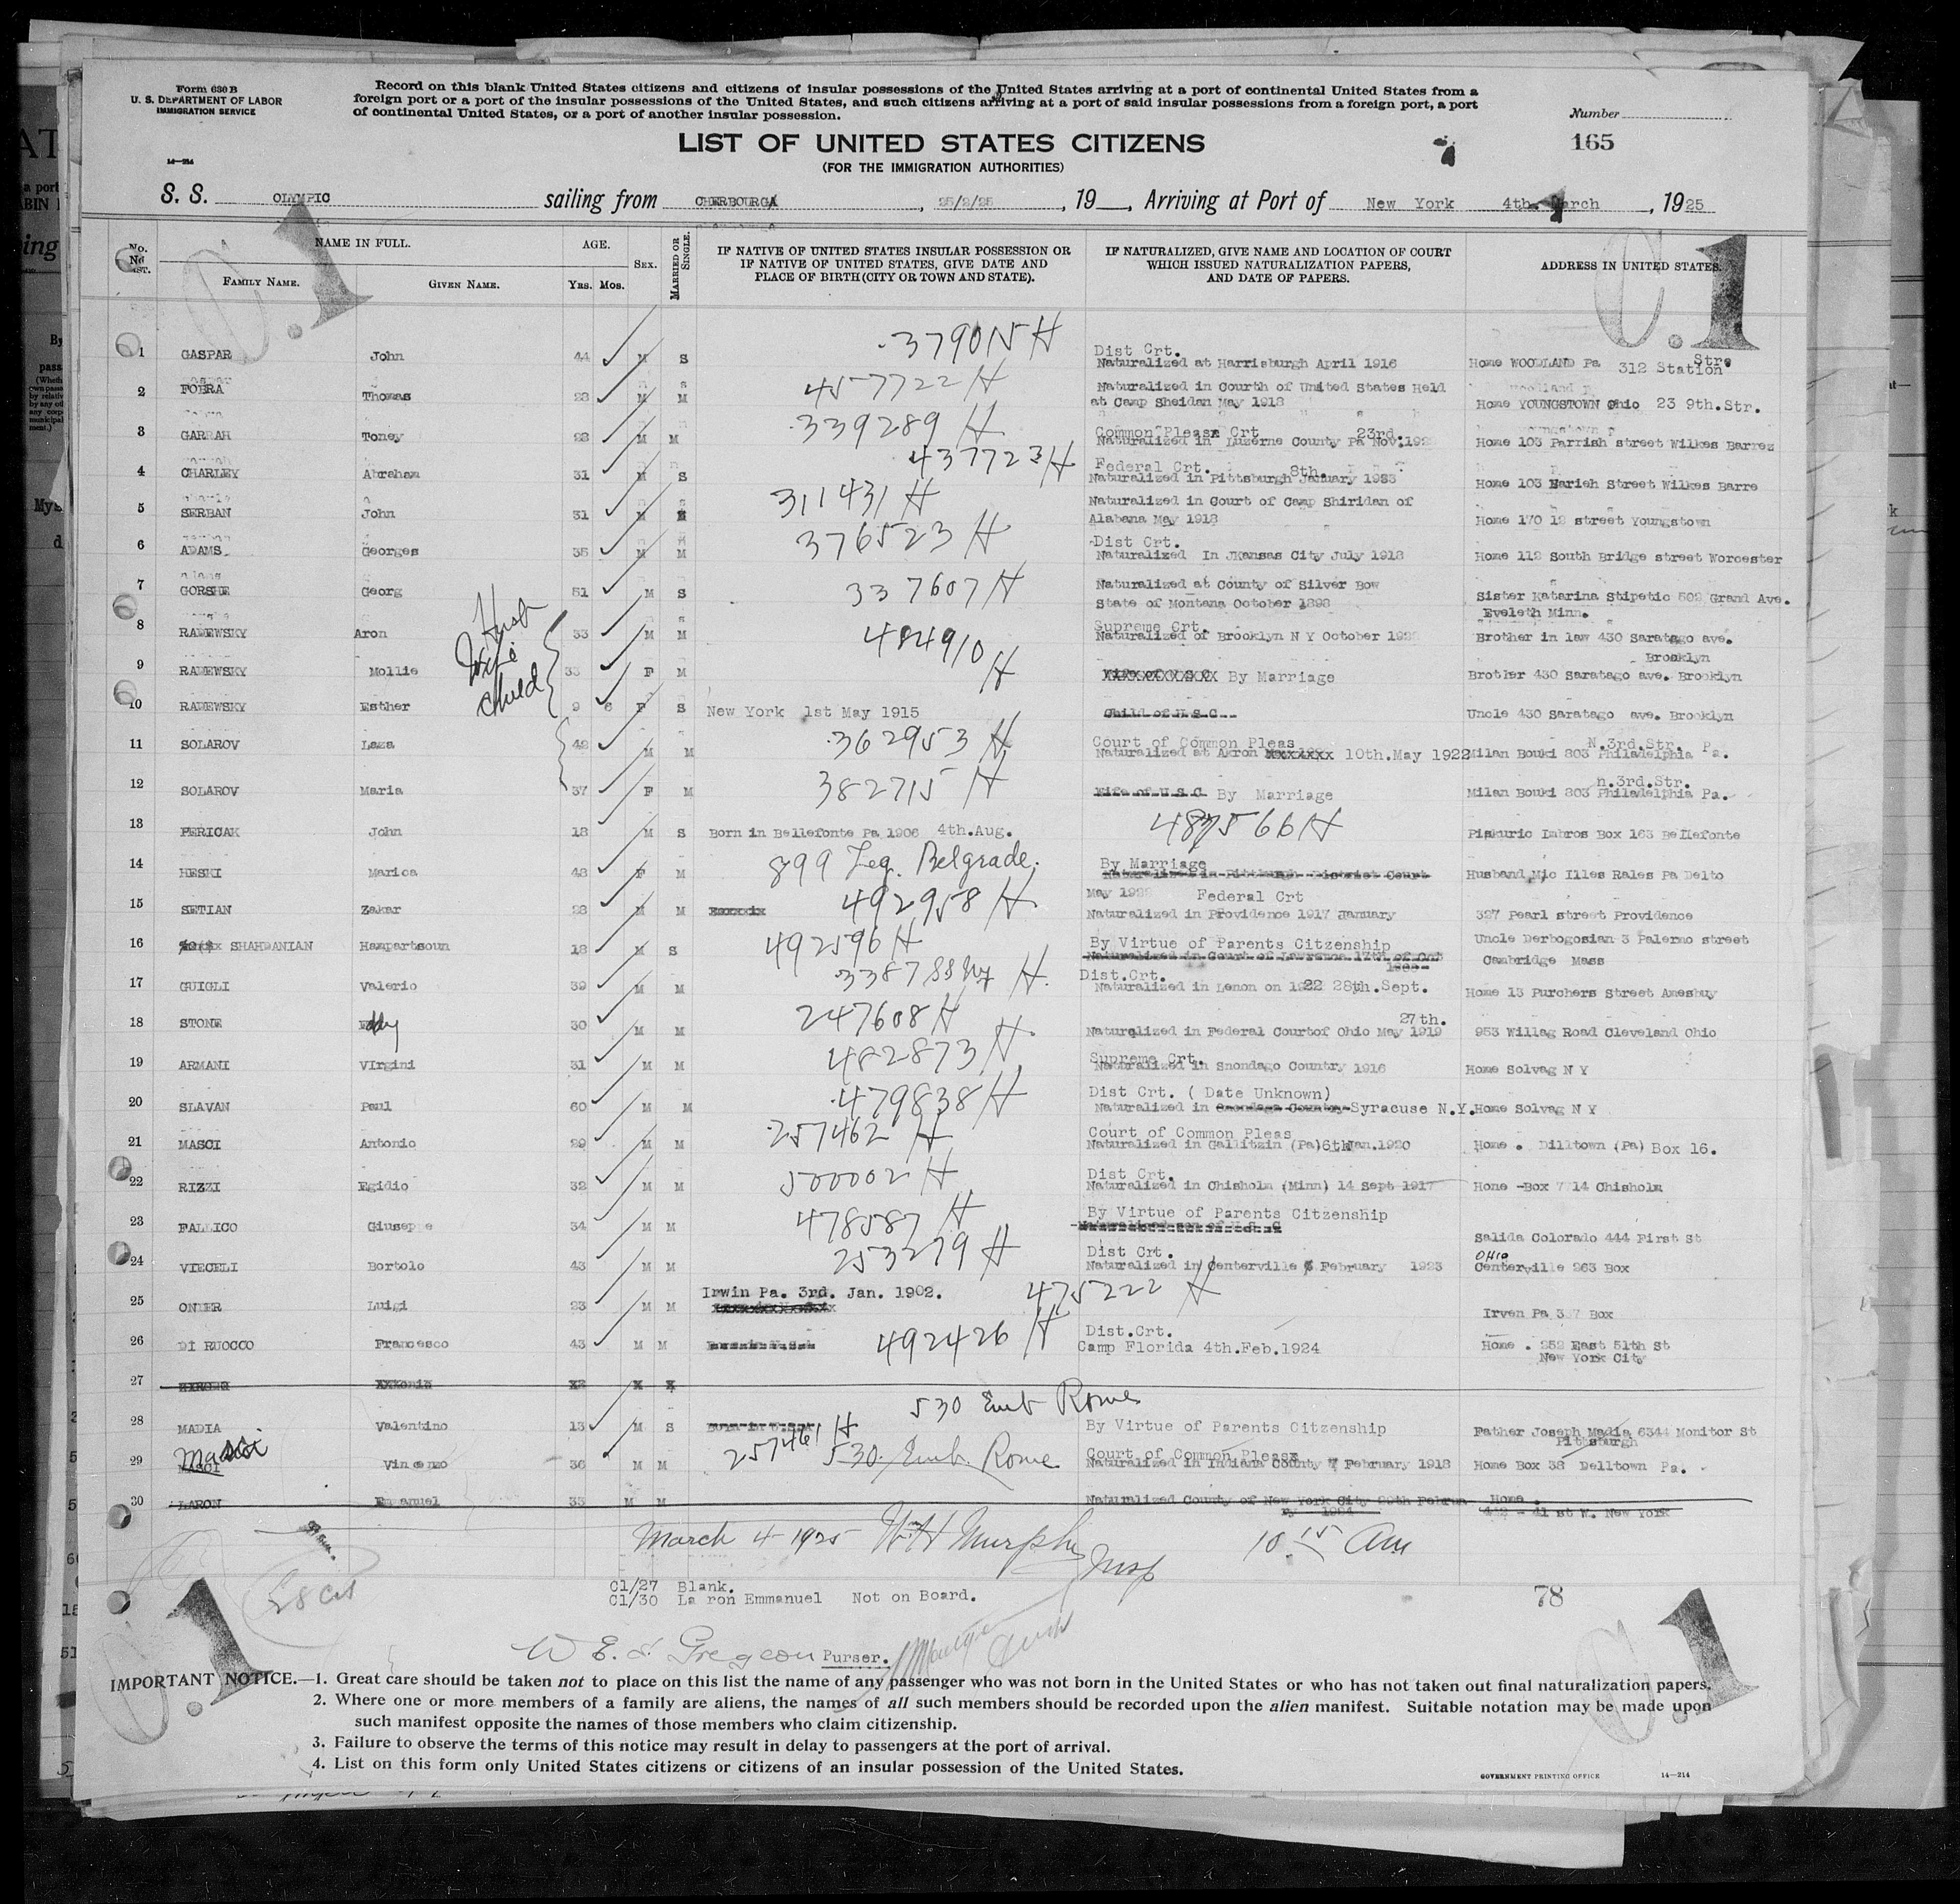 Form 630 B
U. S. DEPARTMENT OF LABOR
IMMIGRATION SERVICE
14—214
Record on this blank United States citizens and citizens of insular possessions of the United States arriving at a port of continental United States from a
foreign port or a port of the insular possessions of the United States, and such citizens arriving at a port of said insular possessions from a foreign port, a port
of continental United States, or a port of another insular possession.
Number
165
LIST OF UNITED STATES CITIZENS
(FOR THE IMMIGRATION AUTHORITIES)
S. S. OLYMPIC sailing from CHERBOURG, 25/2/25, 19, Arriving at Port of New York 4th. March, 1925
No. NAME IN FULL. AGE. SEX. MARRIED OR SINGLE. IF NATIVE OF UNITED STATES INSULAR POSSESSION OR IF NATIVE OF UNITED STATES, GIVE DATE AND PLACE OF BIRTH (CITY OR TOWN AND STATE). IF NATURALIZED, GIVE NAME AND LOCATION OF COURT WHICH ISSUED NATURALIZATION PAPERS, AND DATE OF PAPERS. ADDRESS IN UNITED STATES.
FAMILY NAME. GIVEN NAME. YRS. MOS.
C.1 C.1
1 GASPAR John 44 M S 379015 H Dist Crt. Naturalized at Harrisburgh April 1916 Home WOODLAND Pa 312 Station Stre
2 FOBRA Thomas 28 M M 457722 H Naturalized in Courth of United States Held at Camp Sheidan May 1918 Home YOUNGSTOWN Ohio 23 9th.Str.
3 GARRAH Toney 28 M M 339289 H Common Pleas Crt 23rd. Naturalized in Luzerne County Pa Nov. Home 103 Parrish street Wilkes Barrez
4 CHARLEY Abraham 31 M S 437723 H Federal Crt. 8th. Naturalized in Pittsburgh January 1923 Home 103 Barish Street Wilkes Barre
5 SERBAN John 31 M 311431 H Naturalized in Court of Camp Shiridan of Alabana May 1918 Home 170 12 street Youngstown
6 ADAMS Georges 35 M M 376523 H Dist Crt. Naturalized In JKansas City July 1918 Home 112 South Bridge street Worcester
7 GORSHE Georg 51 M S 337607 H Naturalized at County of Silver Bow State of Montana October 1898 Sister Katarina Stipetic 502 Grand Ave. Eveleth Minn.
Husb
Wife
Child
8 RADEWSKY Aron 33 M M 484910 H Supreme Crt. Naturalized of Brooklyn N Y October Brother in law 430 Saratago ave. Brooklyn
9 RADEWSKY Mollie 33 F M By Marriage Brother 430 Saratago ave. Brooklyn
10 RADEWSKY Esther 9 6 F S New York 1st May 1915 Child of U.S.C Uncle 430 Saratago ave. Brooklyn
11 SOLAROV Laza 42 M M 362953 H Court of Common Pleas Naturalized at Akron 10th.May 1922 Milan Bouki 803 N.3rd.Str. Philadelphia Pa.
12 SOLAROV Maria 37 F M 382715 H Wife of U.S.C By Marriage Milan Bouki 803 n.3rd.Str. Philadelphia Pa.
13 PERICAK John 18 M S Born in Bellefonte Pa 1906 4th.Aug. 487566 H Piskuric Imbros Box 163 Bellefonte
14 HESKI Marica 48 F M 899 Leg. Belgrade. By Marriage Naturalized in Pittburgh District Court Husband Mic Illes Rales Pa Delto
15 SETIAN Zakar 28 M M 492958 H Federal Crt Naturalized in Providence 1917 January 327 Pearl street Providence
16 SHAHDANIAN Hampartsoun 18 M S 492596 H By Virtue of Parents Citzenship Uncle Derbogosian 3 Palermo street Cambridge Mass
17 GUIGLI Valerio 39 M M 338788 Ny H. Dist.Crt. Naturalized in Lenon on 1922 28th.Sept. Home 13 Purchers Street Amesbuy
18 STONE Eddy 30 M M 247608 H 27th. Naturqlized in Federal Courtof Ohio May 1919 953 Willag Road Cleveland Ohio
19 ARMANI VIrgini 31 M M 482873 H. Supreme Crt. Naturalized in Snondago Country 1916 Home Solvag N Y
20 SLAVAN Paul 60 M M 479838 H Dist Crt. ( Date Unknown) Naturalized in Syracuse N.Y. Home Solvag N Y
21 MASCI Antonio 29 M M 257462 H Court of Common Pleas Naturalized in Gallitzin (Pa) 6th Jan.1920 Home . Dilltown (Pa) Box 16.
22 RIZZI Egidio 32 M M 500002 H Dist Crt. Naturalized in Chisholm (Minn) 14 Sept 1917 Home -Box 714 Chisholm
23 FALLICO Giuseppe 34 M M 478587 H By Virtue of Parents Citizenship Salida Colorado 444 First St
24 VIECELI Bortolo 43 M M 253279 H Dist Crt. Naturalized in Centerville February 1923 OHIO Centerville 263 Box
25 ONIER Luigi 23 M M Irwin Pa. 3rd. Jan. 1902. 475222 H Irven Pa 327 Box
26 DI RUOCCO Francesco 43 M M 492426 H Dist.Crt. Camp Florida 4th.Feb.1924 Home . 252 East 51th St New York City
27
28 MADIA Valentino 13 M S 530 Emb Rome By Virtue of Parents Citzenship Father Joseph Madia 6344 Monitor St Pittsburgh
29 Massi MASCI Vincenzo 36 M M 257461 H 530 Emb. Rome Court of Common Pleas Naturalized in Indiana County 7 February 1918 Home Box 38 Delltown Pa.
30 LARON Emanuel 35 M M Naturalized County of New York City 20th Februa ry 1924 Home . 442 - 41 st W. New York
March 4 1925 W H Murphy Insp 10.15 Am
28 Cit
C1/27 Blank.
C1/30 La ron Emmanuel Not on Board.
78
Purser.
C.1 C.1
IMPORTANT NOTICE.—1. Great care should be taken not to place on this list the name of any passenger who was not born in the United States or who has not taken out final naturalization papers.
2. Where one or more members of a family are aliens, the names of all such members should be recorded upon the alien manifest. Suitable notation may be made upon
such manifest opposite the names of those members who claim citizenship.
3. Failure to observe the terms of this notice may result in delay to passengers at the port of arrival.
4. List on this form only United States citizens or citizens of an insular possession of the United States.
GOVERNMENT PRINTING OFFICE 14—214